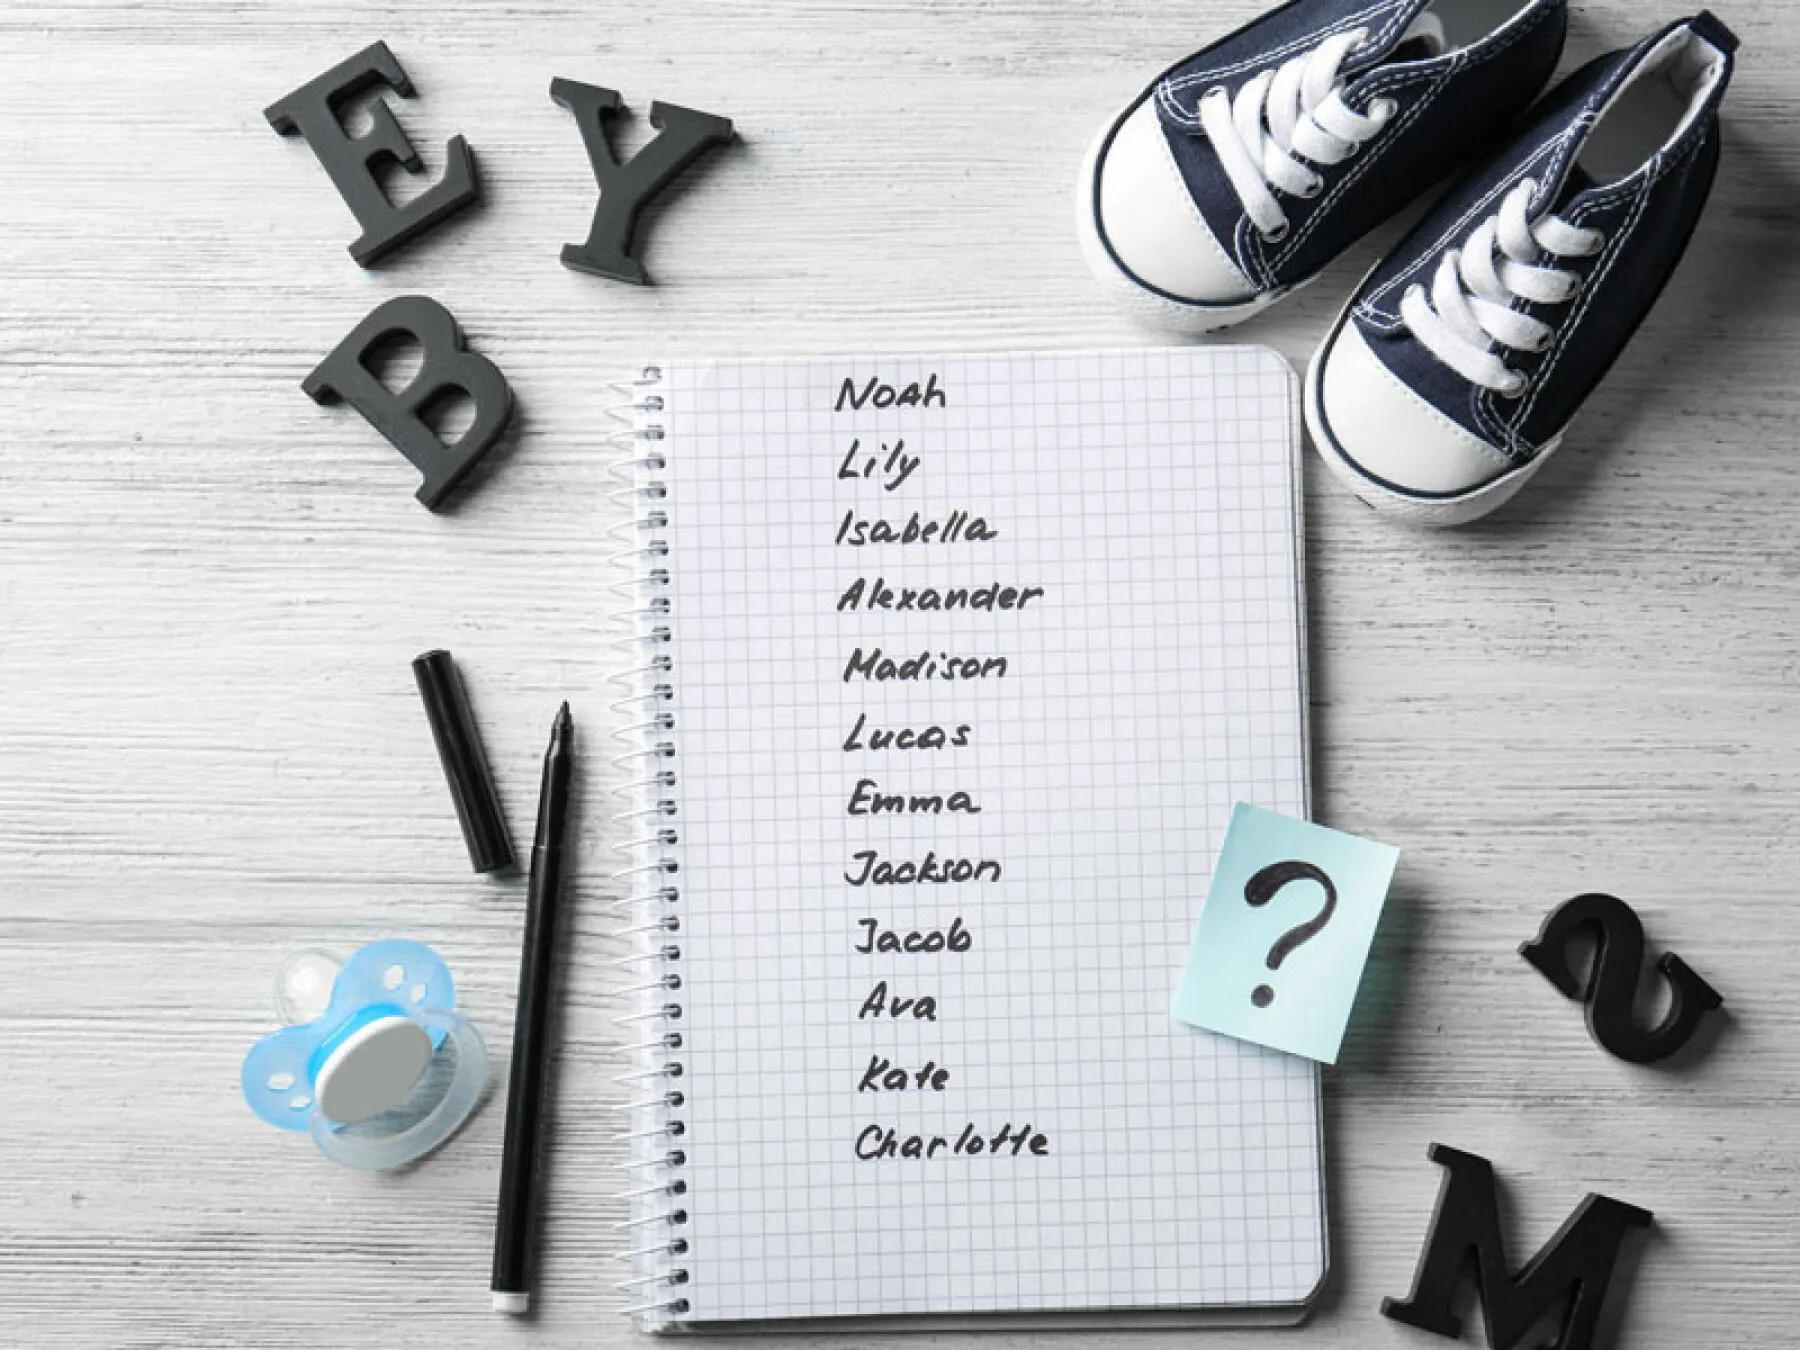 E Y
B
Noah
Lily
Isabella
Alexander
Madison
Lucas
Emma
Jackson
Jacob
Ava
Kate
Charlotte
?
S
M